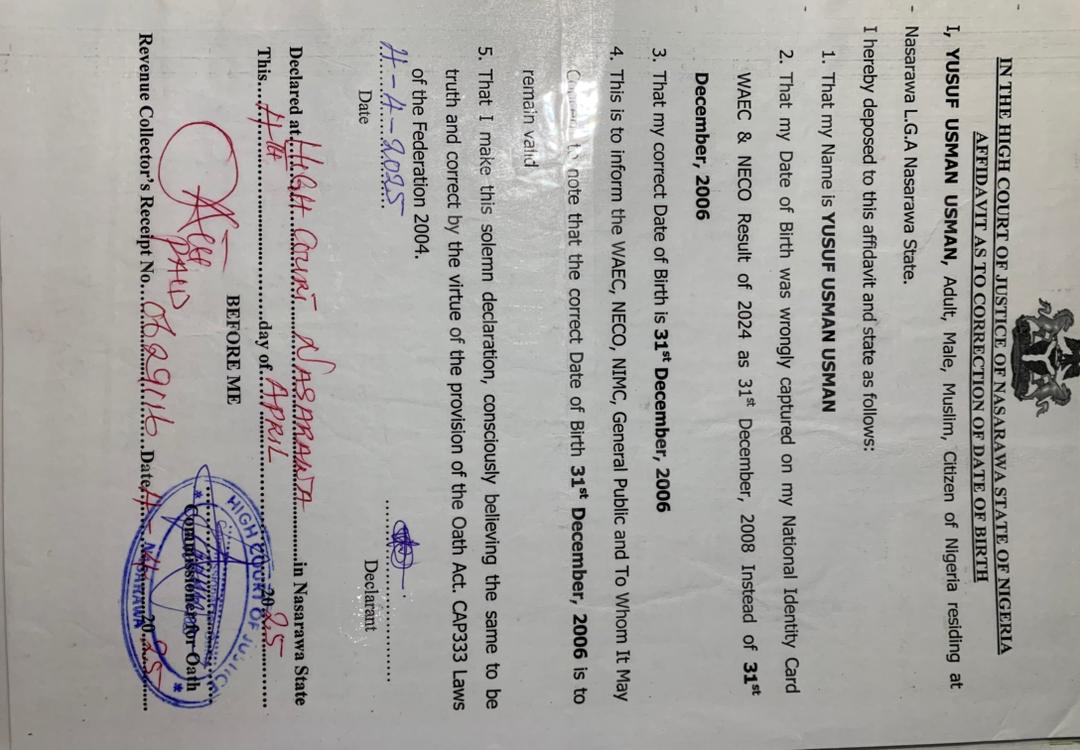 IN THE HIGH COURT OF JUSTICE OF NASARAWA STATE OF NIGERIA
AFFIDAVIT AS TO CORRECTION OF DATE OF BIRTH
I, YUSUF USMAN USMAN, Adult, Male, Muslim, Citizen of Nigeria residing at
Nasarawa L.G.A Nasarawa State.
I hereby deposed to this affidavit and state as follows:
1. That my Name is YUSUF USMAN USMAN
2. That my Date of Birth was wrongly captured on my National Identity Card
WAEC & NECO Result of 2024 as 31st December, 2008 Instead of 31st
December, 2006
3. That my correct Date of Birth is 31st December, 2006
4. This is to inform the WAEC, NECO, NIMC, General Public and To Whom It May
Concern to note that the correct Date of Birth 31st December, 2006 is to
remain valid
5. That I make this solemn declaration, consciously believing the same to be
truth and correct by the virtue of the provision of the Oath Act. CAP333 Laws
of the Federation 2004.
4-4-2025
Date
Declarant
Declared at HIGH COURT NASARAWA in Nasarawa State
This 4th day of APRIL 2025
BEFORE ME
PAID
Commissioner for Oath
Revenue Collector's Receipt No. Date 4-4-2025
HIGH COURT OF JUSTICE
* NASARAWA *